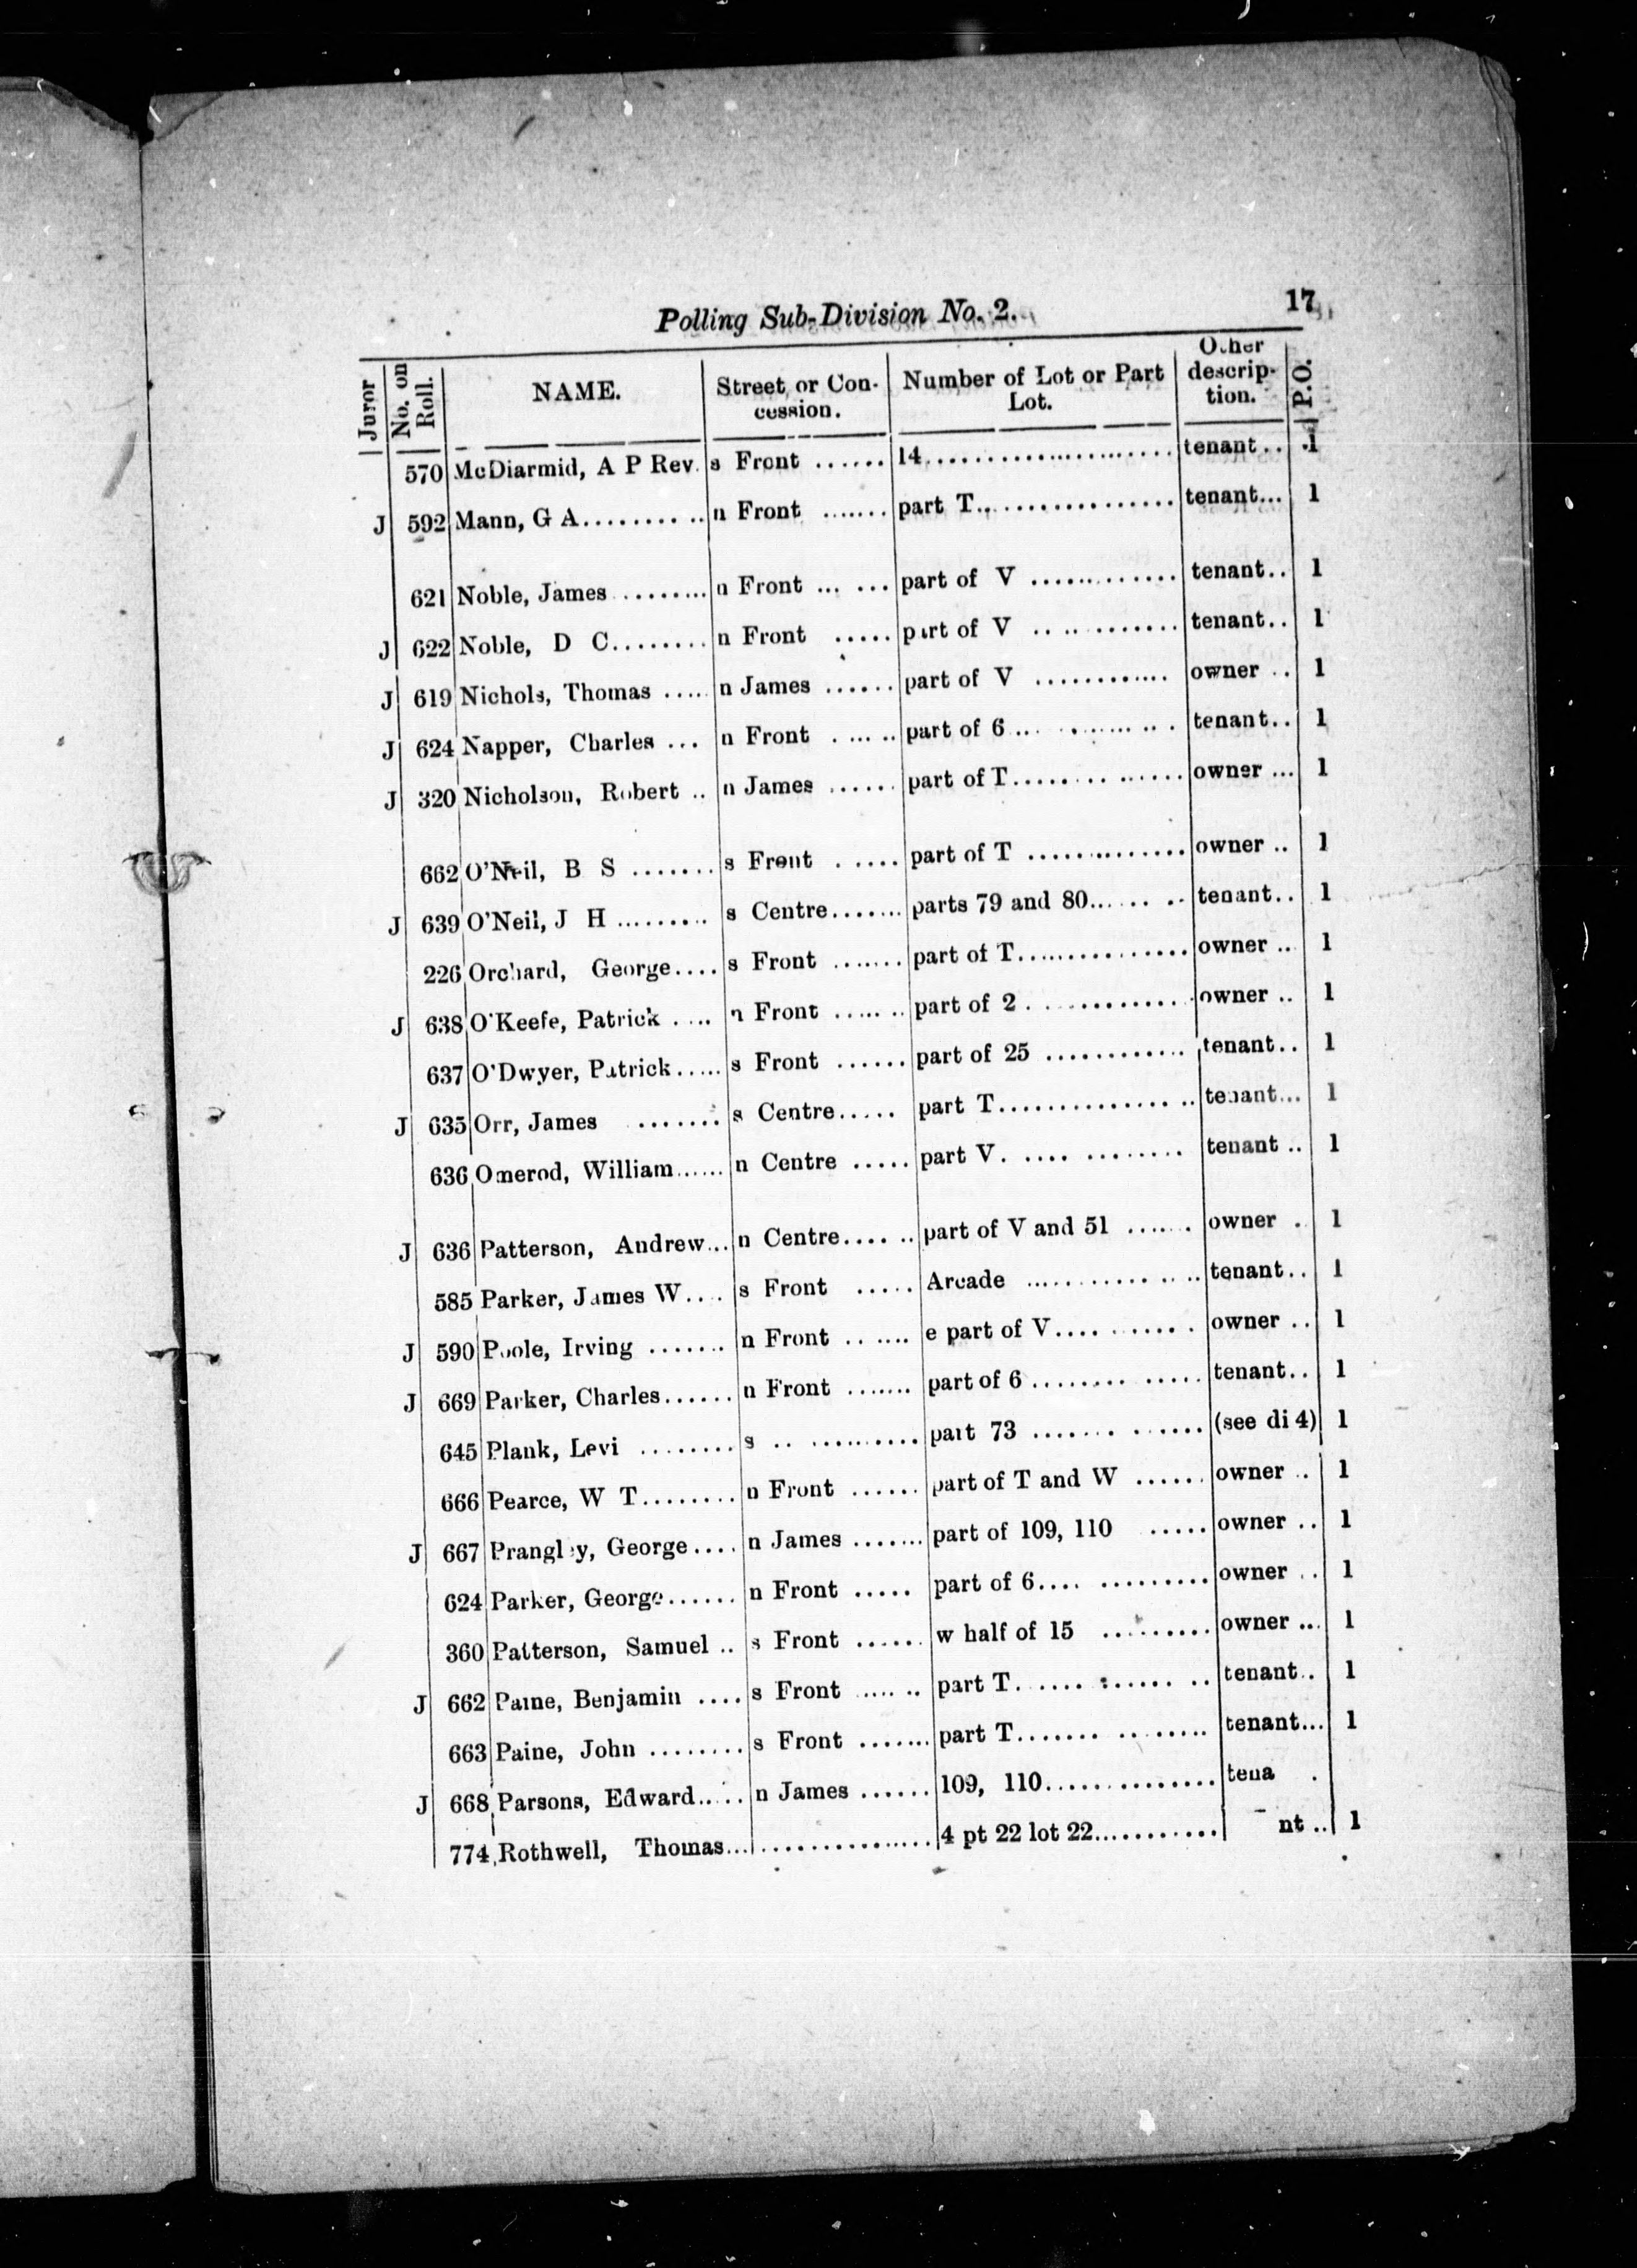 Polling Sub-Division No. 2. 17
Juror No. on Roll. NAME. Street or Con- cession. Number of Lot or Part Lot. Other descrip- tion. P.O.
570 McDiarmid, A P Rev. s Front ...... 14.................... tenant.. 1
J 592 Mann, G A.......... n Front ....... part T.................. tenant... 1
621 Noble, James ......... n Front ... ... part of V ............. tenant.. 1
J 622 Noble, D C........ n Front ..... part of V ............. tenant.. 1
J 619 Nichols, Thomas ..... n James ...... part of V ............ owner .. 1
J 624 Napper, Charles ... n Front . ... .. part of 6 ... ......... . tenant.. 1
J 320 Nicholson, Robert .. n James ...... part of T............... owner ... 1
662 O'Neil, B S ....... s Front . .... part of T .............. owner .. 1
J 639 O'Neil, J H ......... s Centre....... parts 79 and 80...... .. tenant.. 1
226 Orchard, George.... s Front ....... part of T............... owner .. 1
J 638 O'Keefe, Patrick .... n Front ..... .. part of 2 . ............ owner .. 1
637 O'Dwyer, Patrick..... s Front ...... part of 25 ............ tenant.. 1
J 635 Orr, James ....... s Centre..... part T................. tenant... 1
636 Omerod, William...... n Centre ..... part V. .... ......... tenant .. 1
J 636 Patterson, Andrew... n Centre.... .. part of V and 51 ...... owner . 1
585 Parker, James W.... s Front ..... Arcade ............... tenant.. 1
J 590 Poole, Irving ....... n Front ...... e part of V.... ....... owner .. 1
J 669 Parker, Charles...... n Front ....... part of 6 ........ ..... tenant.. 1
645 Plank, Levi ........ s .. .......... part 73 ....... ...... (see di 4) 1
666 Pearce, W T........ n Front ...... part of T and W ...... owner .. 1
J 667 Prangley, George.... n James ....... part of 109, 110 ..... owner .. 1
624 Parker, George...... n Front ..... part of 6.... ......... owner .. 1
360 Patterson, Samuel .. s Front ...... w half of 15 ......... owner ... 1
J 662 Paine, Benjamin .... s Front ..... .. part T. .... ...... .. tenant.. 1
663 Paine, John ........ s Front ....... part T....... ........ tenant... 1
J 668 Parsons, Edward..... n James ...... 109, 110.............. tena .
774 Rothwell, Thomas... ............... 4 pt 22 lot 22........... nt .. 1